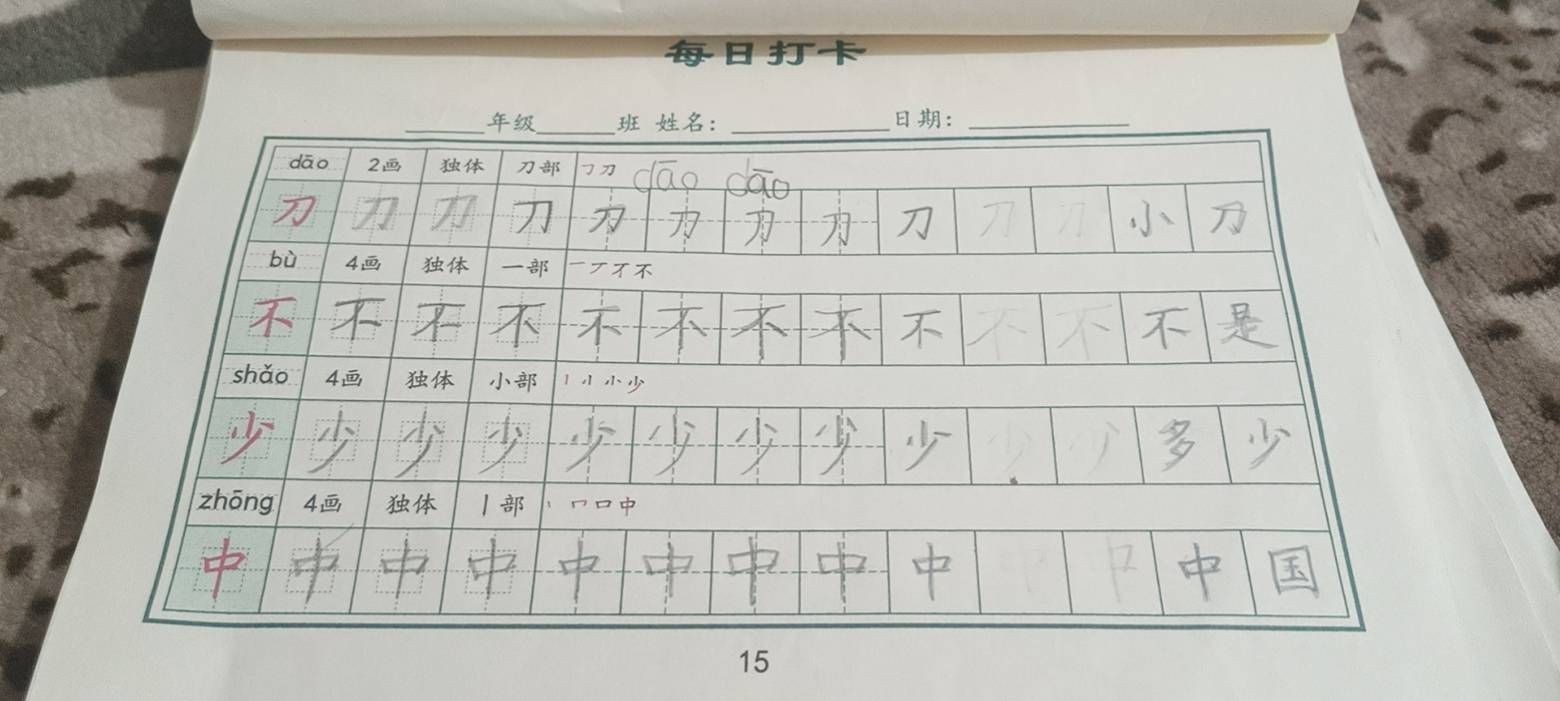 每日打卡
年级 班 姓名： 日期：
dāo 2画 独体 刀部 ㇆刀 dāo dāo
刀 刀 刀 刀 刀 刀 刀 刀 刀 刀 刀 小 刀
bù 4画 独体 一部 一丆不不
不 不 不 不 不 不 不 不 不 不 不 不 是
shǎo 4画 独体 小部 小少
少 少 少 少 少 少 少 少 少 少 少 多 少
zhōng 4画 独体 丨部 丨口口中
中 中 中 中 中 中 中 中 中 中 中 国
15